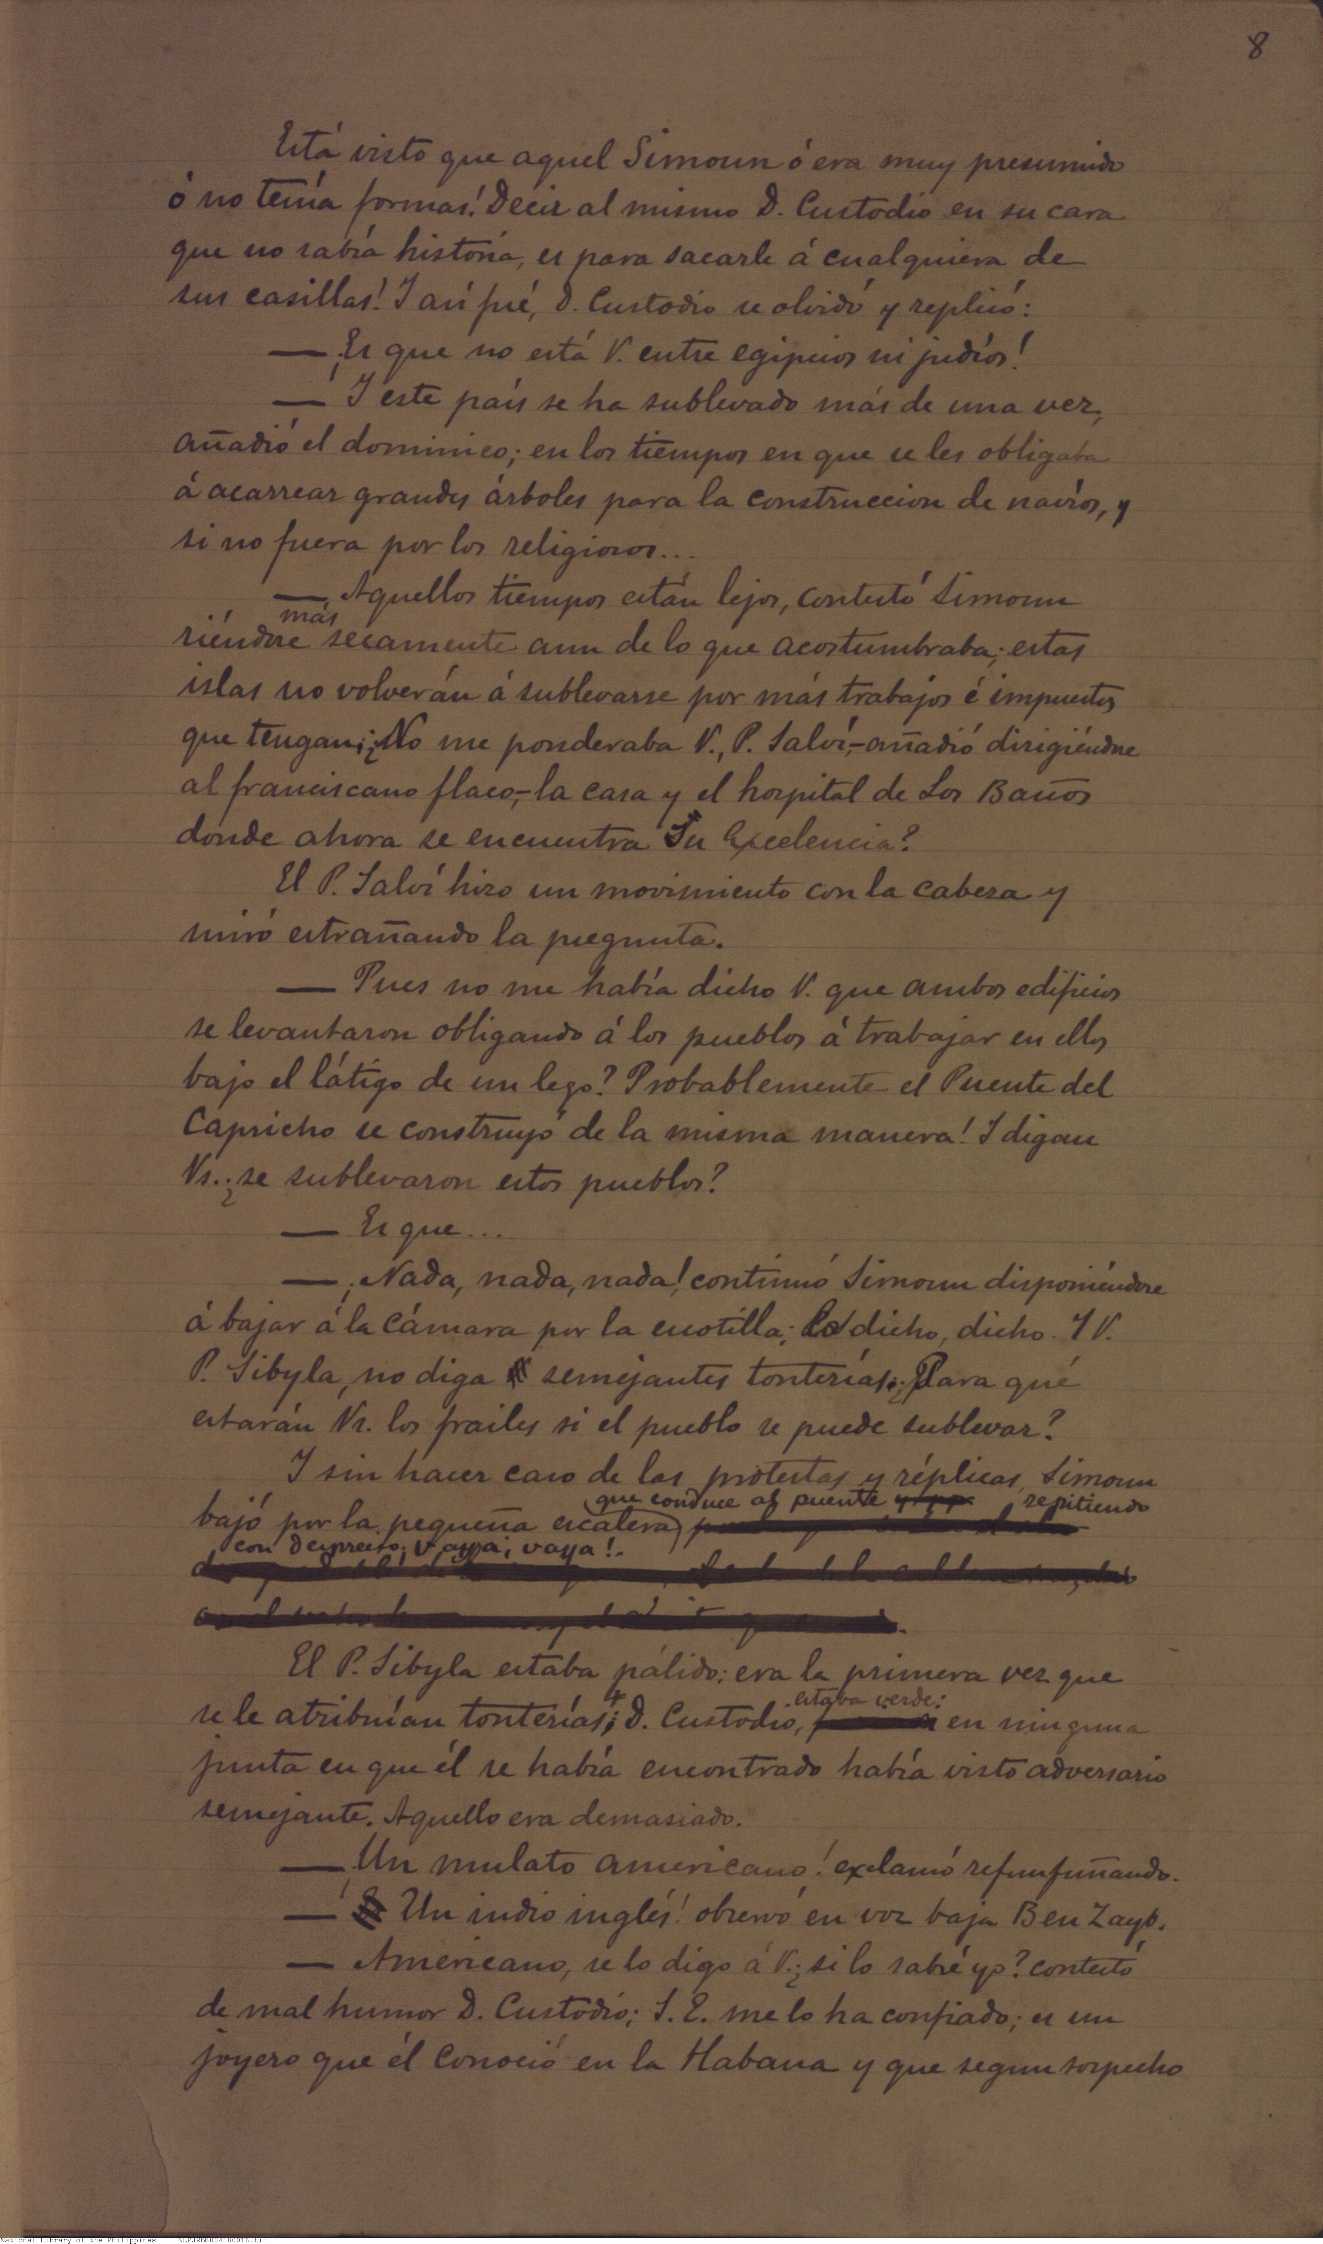 8
Está visto que aquel Simoun ó era muy presumido
ó no tenía formas! Decir al mismo D. Custodio en su cara
que no sabía historia, es para sacarle á cualquiera de
sus casillas! I así fué, D. Custodio se olvidó y replicó:
— ¡Es que no está V. entre egipcios ni judíos!
— I este país se ha sublevado más de una vez,
añadió el dominico; en los tiempos en que se les obligaba
á acarrear grandes árboles para la construccion de navíos, y
si no fuera por los religiosos...
— Aquellos tiempos están lejos, contestó Simoun
riéndose más secamente aun de lo que acostumbraba; estas
islas no volverán á sublevarse por más trabajos é impuestos
que tengan; ¿No me ponderaba V., P. Salví,-añadió dirigiéndose
al franciscano flaco,-la casa y el hospital de Los Baños
donde ahora se encuentra Su Excelencia?
El P. Salví hizo un movimiento con la cabeza y
miró estrañando la pregunta.
— Pues no me había dicho V. que ambos edificios
se levantaron obligando á los pueblos á trabajar en ellos
bajo el látigo de un lego? Probablemente el Puente del
Capricho se construyó de la misma manera! I digan
Vs. ¿se sublevaron estos pueblos?
— Es que...
— ¡Nada, nada, nada! continuó Simoun disponiéndose
á bajar á la cámara por la escotilla; lo dicho, dicho. I V.
P. Sibyla, no diga semejantes tonterías. ¿Para qué
estarán Vs. los frailes si el pueblo se puede sublevar?
I sin hacer caso de las protestas y réplicas, Simoun
que conduce al puente repitiendo
bajó por la pequeña escalera
con desprecio: ¡Vaya, vaya!
El P. Sibyla estaba pálido: era la primera vez que
estaba verde:
se le atribuían tonterías; D. Custodio, en ninguna
junta en que él se había encontrado había visto adversario
semejante. Aquello era demasiado.
— ¡Un mulato americano! exclamó refunfuñando.
— ¡Un indio inglés! observó en voz baja Ben Zayb.
— Americano, se lo digo á V. ¿si lo sabré yo? contestó
de mal humor D. Custodio; S. E. me lo ha confiado; es un
joyero que él conoció en la Habana y que segun sospecho